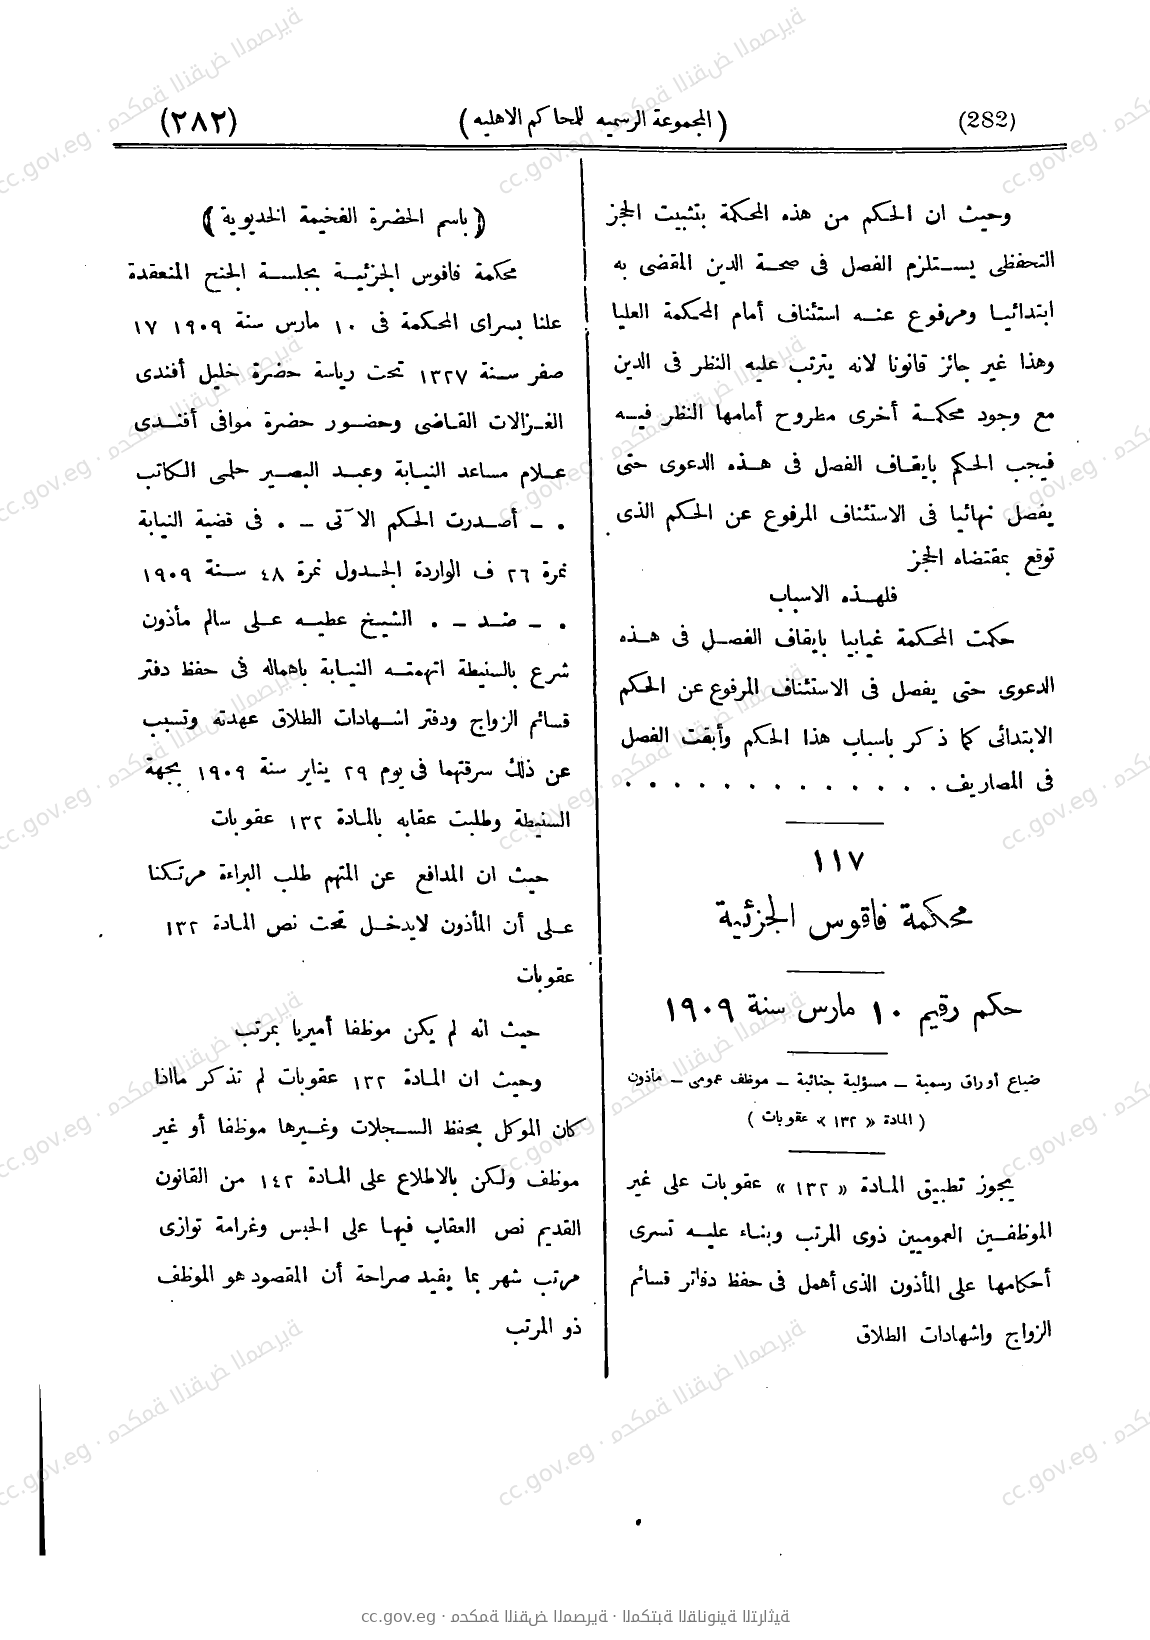 (282)
(المجموعة الرسميه للمحاكم الاهليه)
(٢٨٢)
وحيث ان الحكم من هذه المحكمة بتثبيت الحجز
التحفظى يستلزم الفصل فى صحة الدين المقضى به
ابتدائيا ومرفوع عنه استئناف أمام المحكمة العليا
وهذا غير جائز قانونا لانه يترتب عليه النظر فى الدين
مع وجود محكمة أخرى مطروح أمامها النظر فيه
فيجب الحكم بايقاف الفصل فى هذه الدعوى حتى
يفصل نهائيا فى الاستئناف المرفوع عن الحكم الذى
توقع بمقتضاه الحجز
فلهذه الاسباب
حكمت المحكمة غيابيا بايقاف الفصل فى هذه
الدعوى حتى يفصل فى الاستئناف المرفوع عن الحكم
الابتدائى كما ذكر باسباب هذا الحكم وأبقت الفصل
فى المصاريف . . . . . . . . . . . . .
١١٧
محكمة فاقوس الجزئية
حكم رقيم ١٠ مارس سنة ١٩٠٩
ضياع أوراق رسمية ــ مسؤلية جنائية ــ موظف عمومى ــ مأذون
( المادة « ١٣٢ » عقوبات )
يجوز تطبيق المادة « ١٣٢ » عقوبات على غير
الموظفين العموميين ذوى المرتب وبناء عليه تسرى
أحكامها على المأذون الذى أهمل فى حفظ دفاتر قسائم
الزواج واشهادات الطلاق
(باسم الحضرة الفخيمة الخديوية)
محكمة فاقوس الجزئية بجلسة الجنح المنعقدة
علنا بسراى المحكمة فى ١٠ مارس سنة ١٩٠٩ ١٧
صفر سنة ١٣٢٧ تحت رياسة حضرة خليل أفندى
الغزالات القاضى وحضور حضرة موافى أفندى
علام مساعد النيابة وعبد البصير حلمى الكاتب
. ــ أصدرت الحكم الآتى ــ . فى قضية النيابة
نمرة ٢٦ ف الواردة الجدول نمرة ٤٨ سنة ١٩٠٩
. ــ ضد ــ . الشيخ عطيه على سالم مأذون
شرع بالسنيطة اتهمته النيابة باهماله فى حفظ دفتر
قسائم الزواج ودفتر اشهادات الطلاق عهدته وتسبب
عن ذلك سرقتهما فى يوم ٢٩ يناير سنة ١٩٠٩ بجهة
السنيطة وطلبت عقابه بالمادة ١٣٢ عقوبات
حيث ان المدافع عن المتهم طلب البراءة مرتكنا
على أن المأذون لايدخل تحت نص المادة ١٣٢
عقوبات
حيث انه لم يكن موظفا أميريا بمرتب
وحيث ان المادة ١٣٢ عقوبات لم تذكر مااذا
كان الموكل بحفظ السجلات وغيرها موظفا أو غير
موظف ولكن بالاطلاع على المادة ١٤٢ من القانون
القديم نص العقاب فيها على الحبس وغرامة توازى
مرتب شهر بما يفيد صراحة أن المقصود هو الموظف
ذو المرتب
cc.gov.eg · محكمة النقض المصرية · المكتبة القانونية التراثية